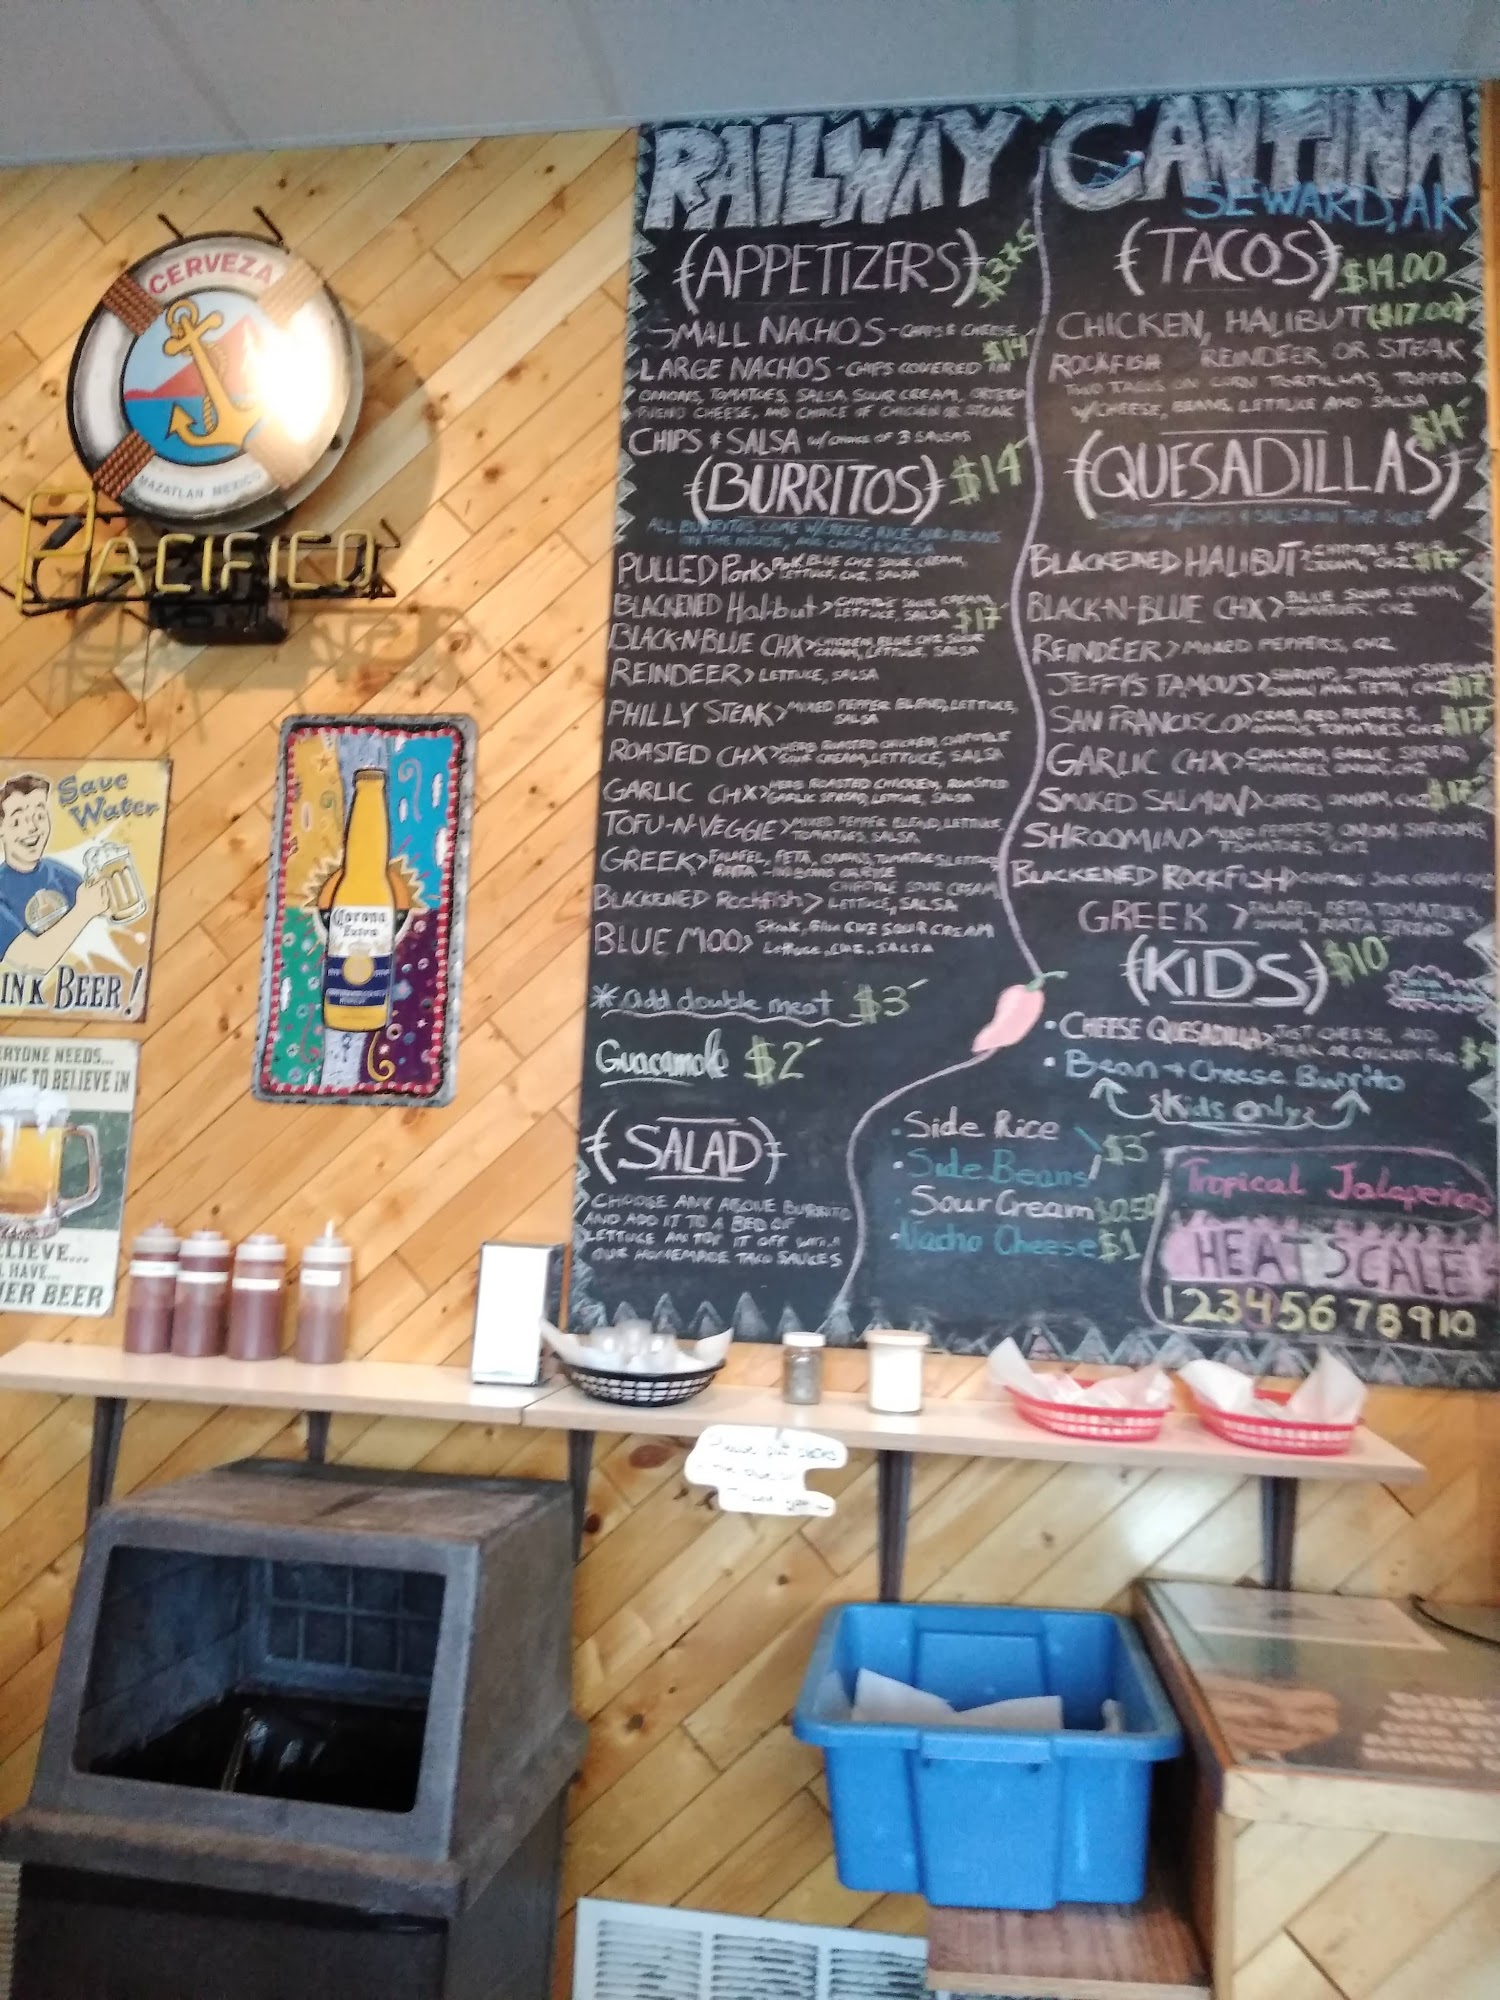 CERVEZA
MAZATLAN MEXICO
PACIFICO
Save
Water
INK BEER!
Corona
Extra
ERYONE NEEDS...
HING TO BELIEVE IN
ELIEVE...
L HAVE...
HER BEER
RAILWAY CANTINA
SEWARD, AK
(APPETIZERS) $3.75
SMALL NACHOS - CHIPS & CHEESE
$14
LARGE NACHOS - CHIPS COVERED IN
ONIONS, TOMATOES, SALSA, SOUR CREAM,
CHEESE, AND CHOICE OF CHICKEN OR STEAK
CHIPS & SALSA W/ CHOICE OF 3 SALSAS
(BURRITOS) $14
ALL BURRITOS COME W/CHEESE, RICE AND BEANS
ON THE INSIDE, AND CHIPS & SALSA
PULLED Pork > Pork, BLUE CHZ SOUR CREAM,
LETTUCE, CHZ, SALSA
BLACKENED Halibut > CHIPOTLE SOUR CREAM,
LETTUCE, SALSA $17
BLACK-N-BLUE CHX > CHICKEN, BLUE CHZ SOUR
CREAM, LETTUCE, SALSA
REINDEER > LETTUCE, SALSA
PHILLY STEAK > MIXED PEPPER BLEND, LETTUCE,
SALSA
ROASTED CHX > HERB ROASTED CHICKEN, CHIPOTLE
SOUR CREAM, LETTUCE, SALSA
GARLIC CHX > HERB ROASTED CHICKEN, ROASTED
GARLIC SPREAD, LETTUCE, SALSA
TOFU-N-VEGGIE > MIXED PEPPER BLEND, LETTUCE,
TOMATOES, SALSA
GREEK > FALAFEL, FETA, TOMATOES, LETTUCE
BLACKENED Rockfish > CHIPOTLE SOUR CREAM,
LETTUCE, SALSA
BLUE MOO > Steak, Blue CHZ SOUR CREAM
Lettuce, CHZ, SALSA
* add double meat $3
Guacamole $2
(SALAD)
CHOOSE ANY ABOVE BURRITO
AND ADD IT TO A BED OF
LETTUCE TOP IT OFF
OUR HOMEMADE TACO SAUCES
(TACOS) $14.00
CHICKEN, HALIBUT ($17.00)
ROCKFISH REINDEER, OR STEAK
TWO TACOS ON CORN TORTILLAS, TOPPED
W/CHEESE, BEANS, LETTUCE AND SALSA
(QUESADILLAS) $14
SERVED W/CHIPS & SALSA ON THE SIDE
BLACKENED HALIBUT > CHIPOTLE SOUR
CREAM, CHZ $17
BLACK-N-BLUE CHX > BLUE SOUR CREAM,
TOMATOES, CHZ
REINDEER > MIXED PEPPERS, CHZ
JEFFY'S FAMOUS > SHRIMP,
FETA, CHZ $17
SAN FRANCISCO > CRAB, RED PEPPERS,
TOMATOES, CHZ $17
GARLIC CHX > CHICKEN, GARLIC SPREAD,
TOMATOES, ONION, CHZ
SMOKED SALMON > CAPERS, ONION, CHZ
SHROOMIN > MIXED PEPPERS, ONION, SHROOMS,
TOMATOES, CHZ
BLACKENED ROCKFISH > CHIPOTLE SOUR CREAM CHZ
GREEK > FALAFEL, FETA, TOMATOES,
SPREAD
(KIDS) $10
• CHEESE QUESADILLA > JUST CHEESE, ADD
STEAK OR CHICKEN FOR
• Bean + Cheese Burrito
Kids only
• Side Rice
• Side Beans $3
• Sour Cream $0.50
• Nacho Cheese $1
Tropical Jalapeños
HEAT SCALE
1 2 3 4 5 6 7 8 9 10